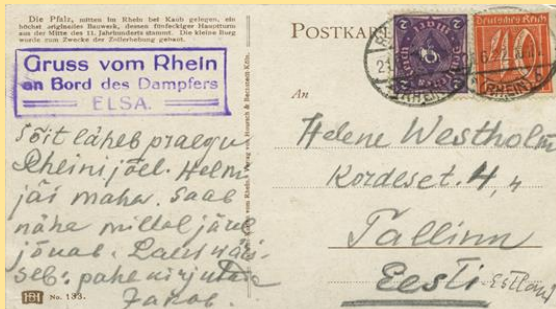 Die Pfalz, mitten im Rhein bei Kaub gelegen, ein
höchst originelles Bauwerk, dessen fünfeckiger Hauptturm
aus der Mitte des 13. Jahrhunderts stammt. Die kleine Burg
wurde zum Zwecke der Zollerhebung gebaut.
Gruss vom Rhein
an Bord des Dampfers
ELSA.
Sõit läheb praegu
Rheini jõel. Helmi
jäi maha. Saab
näha millal järel
jõuab. Laev väri-
seb: paha kirjutada
Jakob.
No. 133.
POSTKAR
Deutsches Reich
40
2
RHEIN
An
Helene Westholm
Kordeset. 4, 4
Tallinn
Eesti Estland